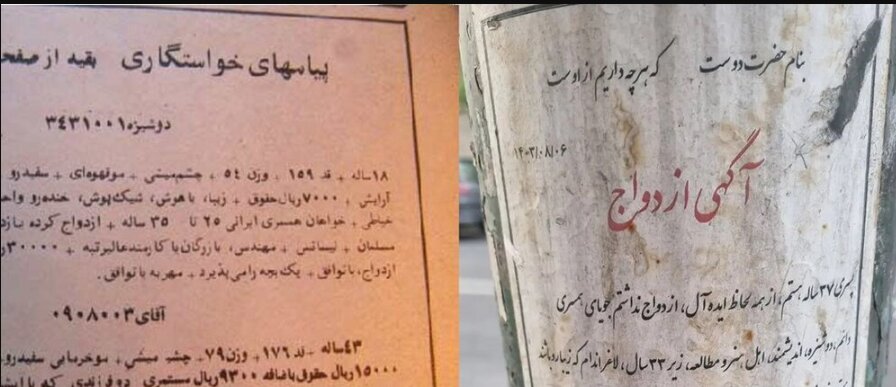 پیامهای خواستگاری بقیه از صفحه
دوشیزه ۳۴۳۱۰۰۱
۱۸ساله + قد ۱۵۹ + وزن ۵۴ + چشم‌میشی + موقهوه‌ای + سفیدرو
آرایش + ۷۰۰۰ ریال حقوق + زیبا، باهوش، شیک‌پوش، خنده‌رو
خیاطی + خواهان همسری ایرانی ۲۵ تا ۳۵ ساله + ازدواج کرده
مسلمان + لیسانس + مهندس، بازرگان یا کارمند عالیرتبه + ۳۰۰۰۰
ازدواج، با توافق + یک بچه را می‌پذیرد + مهریه با توافق.
آقای ۰۹۰۸۰۰۳
۴۳ساله + قد ۱۷۶ + وزن ۷۹ + چشم میشی + موخرمایی سفیدرو
۱۵۰۰۰ ریال حقوق باضافه ۹۳۰۰ ریال مستمری دو فرزندی که با
بنام حضرت دوست که هر چه داریم از اوست
۱۴۰۳/۰۸/۰۶
آگهی ازدواج
پسری ۳۷ ساله هستم، از همه لحاظ ایده آل، ازدواج نداشتم جویای همسری
دائم، دوشیزه، اندیشمند، اهل هنر و مطالعه، زیر ۳۳ سال، لاغر اندام که زیبارو باشد